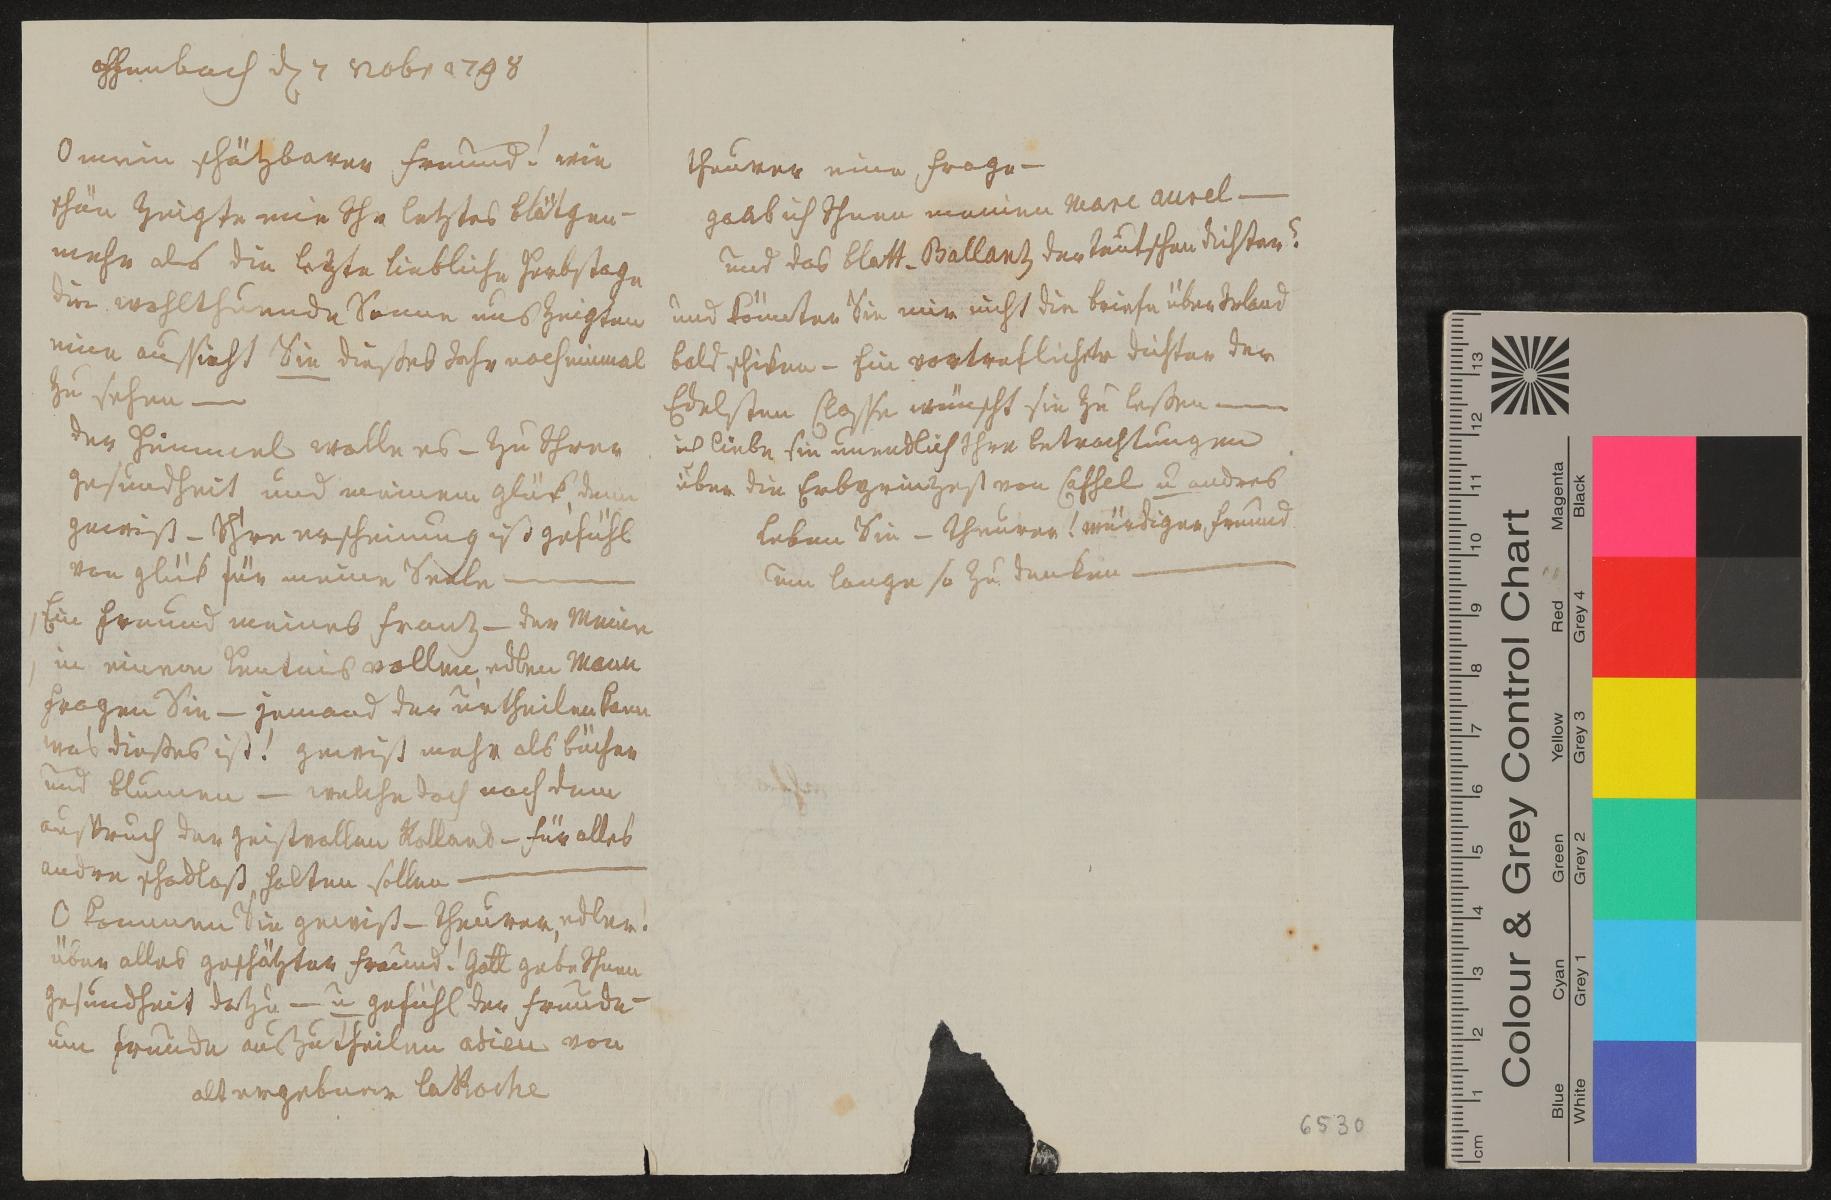 offenbach d 7 Nobr 1798
O mein schätzbarer Freund! wie
schön zeigte mir Ihr letztes blätgen –
mehr als die letzte liebliche Herbstage
die wohlthuende Sonne uns zeigten
eine aussicht Sie dießes Jahr noch einmal
zu sehen —
der Himmel wolle es – zu Ihrer
gesundheit und meinem glük, denn
gewiß – Ihre erscheinung ist gefühl
von glük für meine Seele —
Ein Freund meines Franz – der Meine
in einem kentnis vollen, edlen Mann
Fragen Sie – jemand der urtheilen kann
was dießes ist! gewiß mehr als bücher
und blumen – welche doch nach dem
ausspruch der geistvollen Rolland – für alles
andre schadloß halten sollen —
O kommen Sie gewiß – theurer, edler!
über alles geschätzter Freund! Gott gebe Ihnen
gesundheit dazu – u gefühl der Freude –
um Freude auszutheilen adieu von
alt ergebner la Roche
theurer eine Frage –
gaab ich Ihnen meinen Marc aurel —
und das blatt – Ballantz der teutschen dichter?
und könten Sie mir nicht die briefe über Irland
bald schiken – Ein vortreflicher dichter der
Edelsten Classe wünscht sie zu leßen —
ich liebe sie unendlich Ihre betrachtungen
über die Erbprinzeß von Cassel u andres
leben Sie – theurer! würdiger Freund
um lange so zu denken —
6530
Colour & Grey Control Chart
Blue Cyan Green Yellow Red Magenta
White Grey 1 Grey 2 Grey 3 Grey 4 Black
cm 1 2 3 4 5 6 7 8 9 10 11 12 13